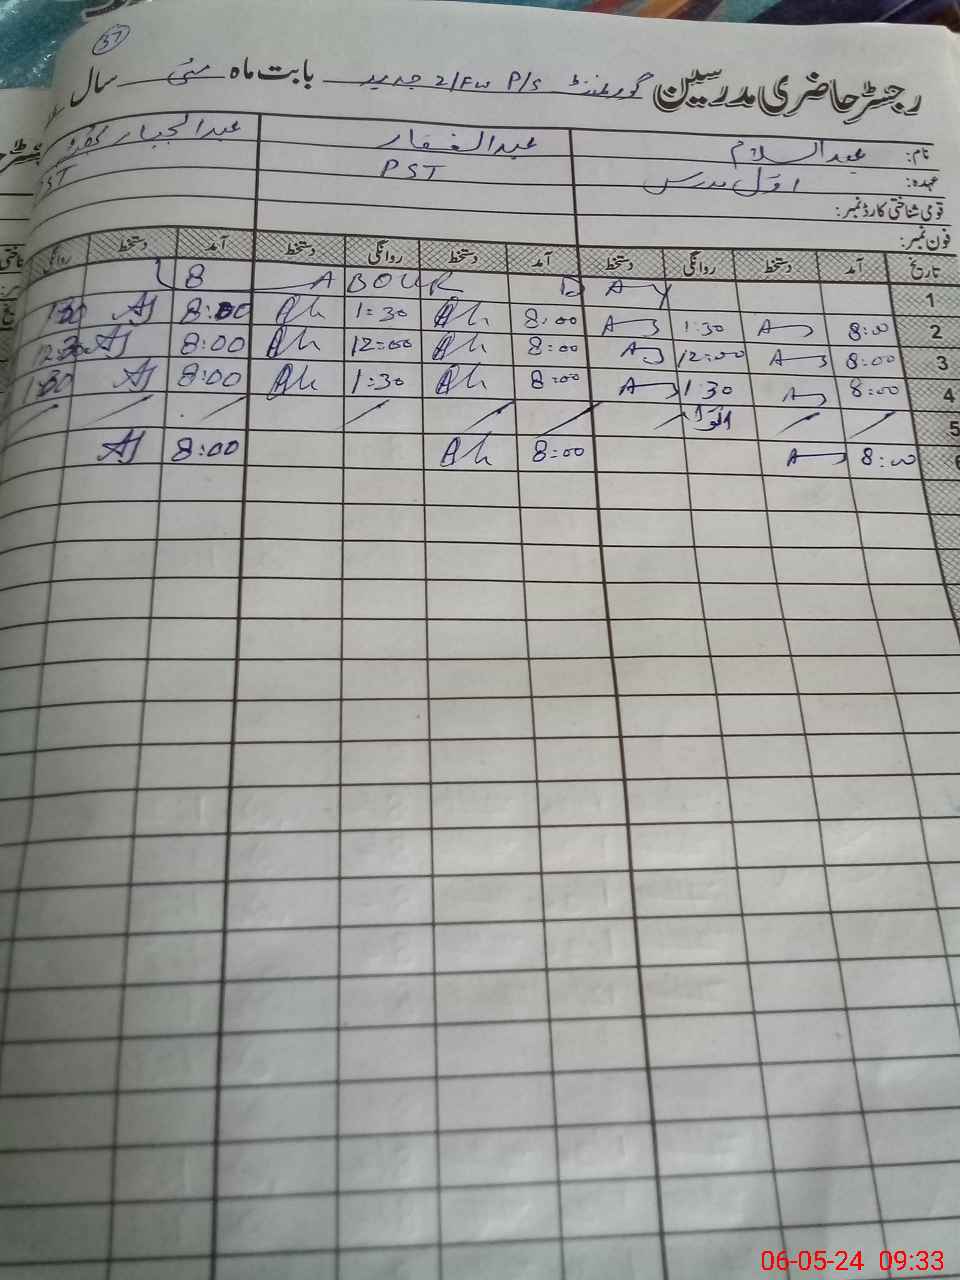 37
رجسٹر حاضری مدرسین گورنمنٹ P/S 2/FW جدید بابت ماہ مئی سال
نام: عبدالسلام عبدالغفار عبدالجبار
عہدہ: اول مدرس PST PST
قومی شناختی کارڈ نمبر:
فون نمبر:
تاریخ آمد دستخط روانگی دستخط آمد دستخط روانگی دستخط آمد دستخط روانگی
1 L A B O U R D A Y
2 8:00 1:30 8:00 Ah 1:30 Ah 8:00 AJ 1:30
3 8:00 12:00 8:00 Ah 12:00 Ah 8:00 AJ
4 8:00 1:30 8:00 Ah 1:30 Ah 8:00 AJ 1:30
5 اتوار
6 8:00 8:00 Ah 8:00 AJ
06-05-24 09:33